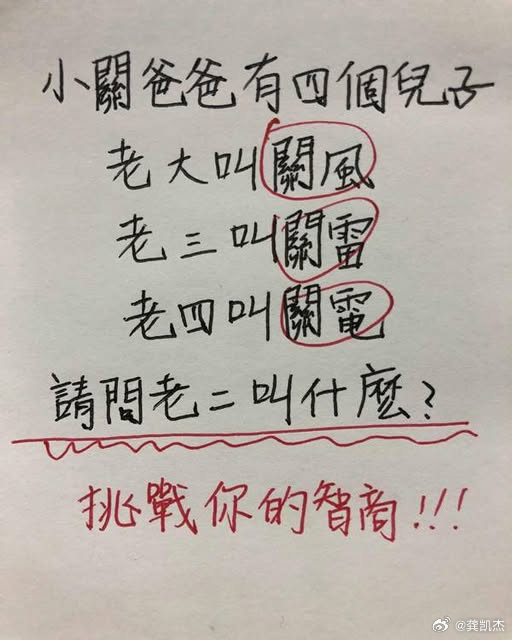 小關爸爸有四個兒子
老大叫關風
老三叫關雷
老四叫關電
請問老二叫什麼?
挑戰你的智商!!!
@龚凯杰